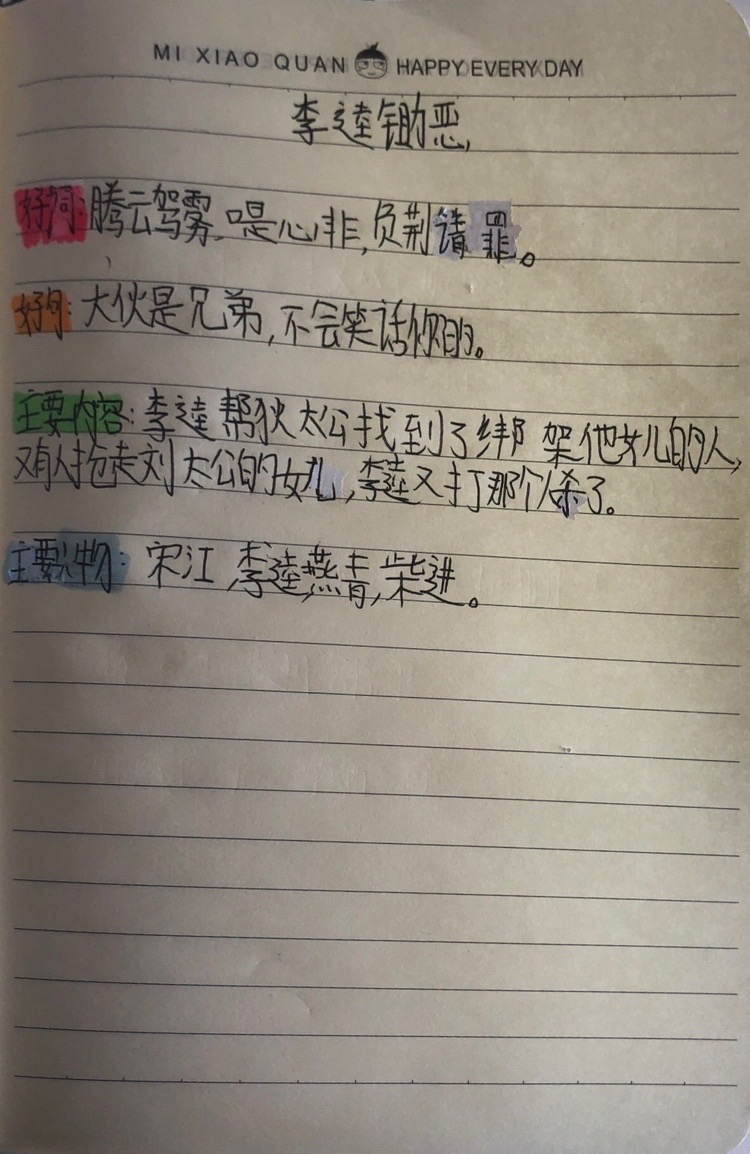 MI XIAO QUAN HAPPY EVERY DAY
李逵锄恶
好词:腾云驾雾,口是心非,负荆请罪。
好句:大伙是兄弟,不会笑话你的。
主要内容:李逵帮狄太公找到了绑架他女儿的人,
又有人抢走刘太公的女儿,李逵又打那个人杀了。
主要人物:宋江,李逵,燕青,柴进。